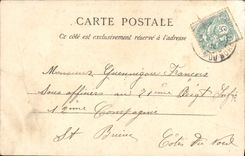 CARTE POSTALE
Ce côté est exclusivement réservé à l'adresse
Monsieur Guennigou François
Sous officiers au 71ème Regt Infie
1 ème Compagnie
St Brieuc Côtes du Nord